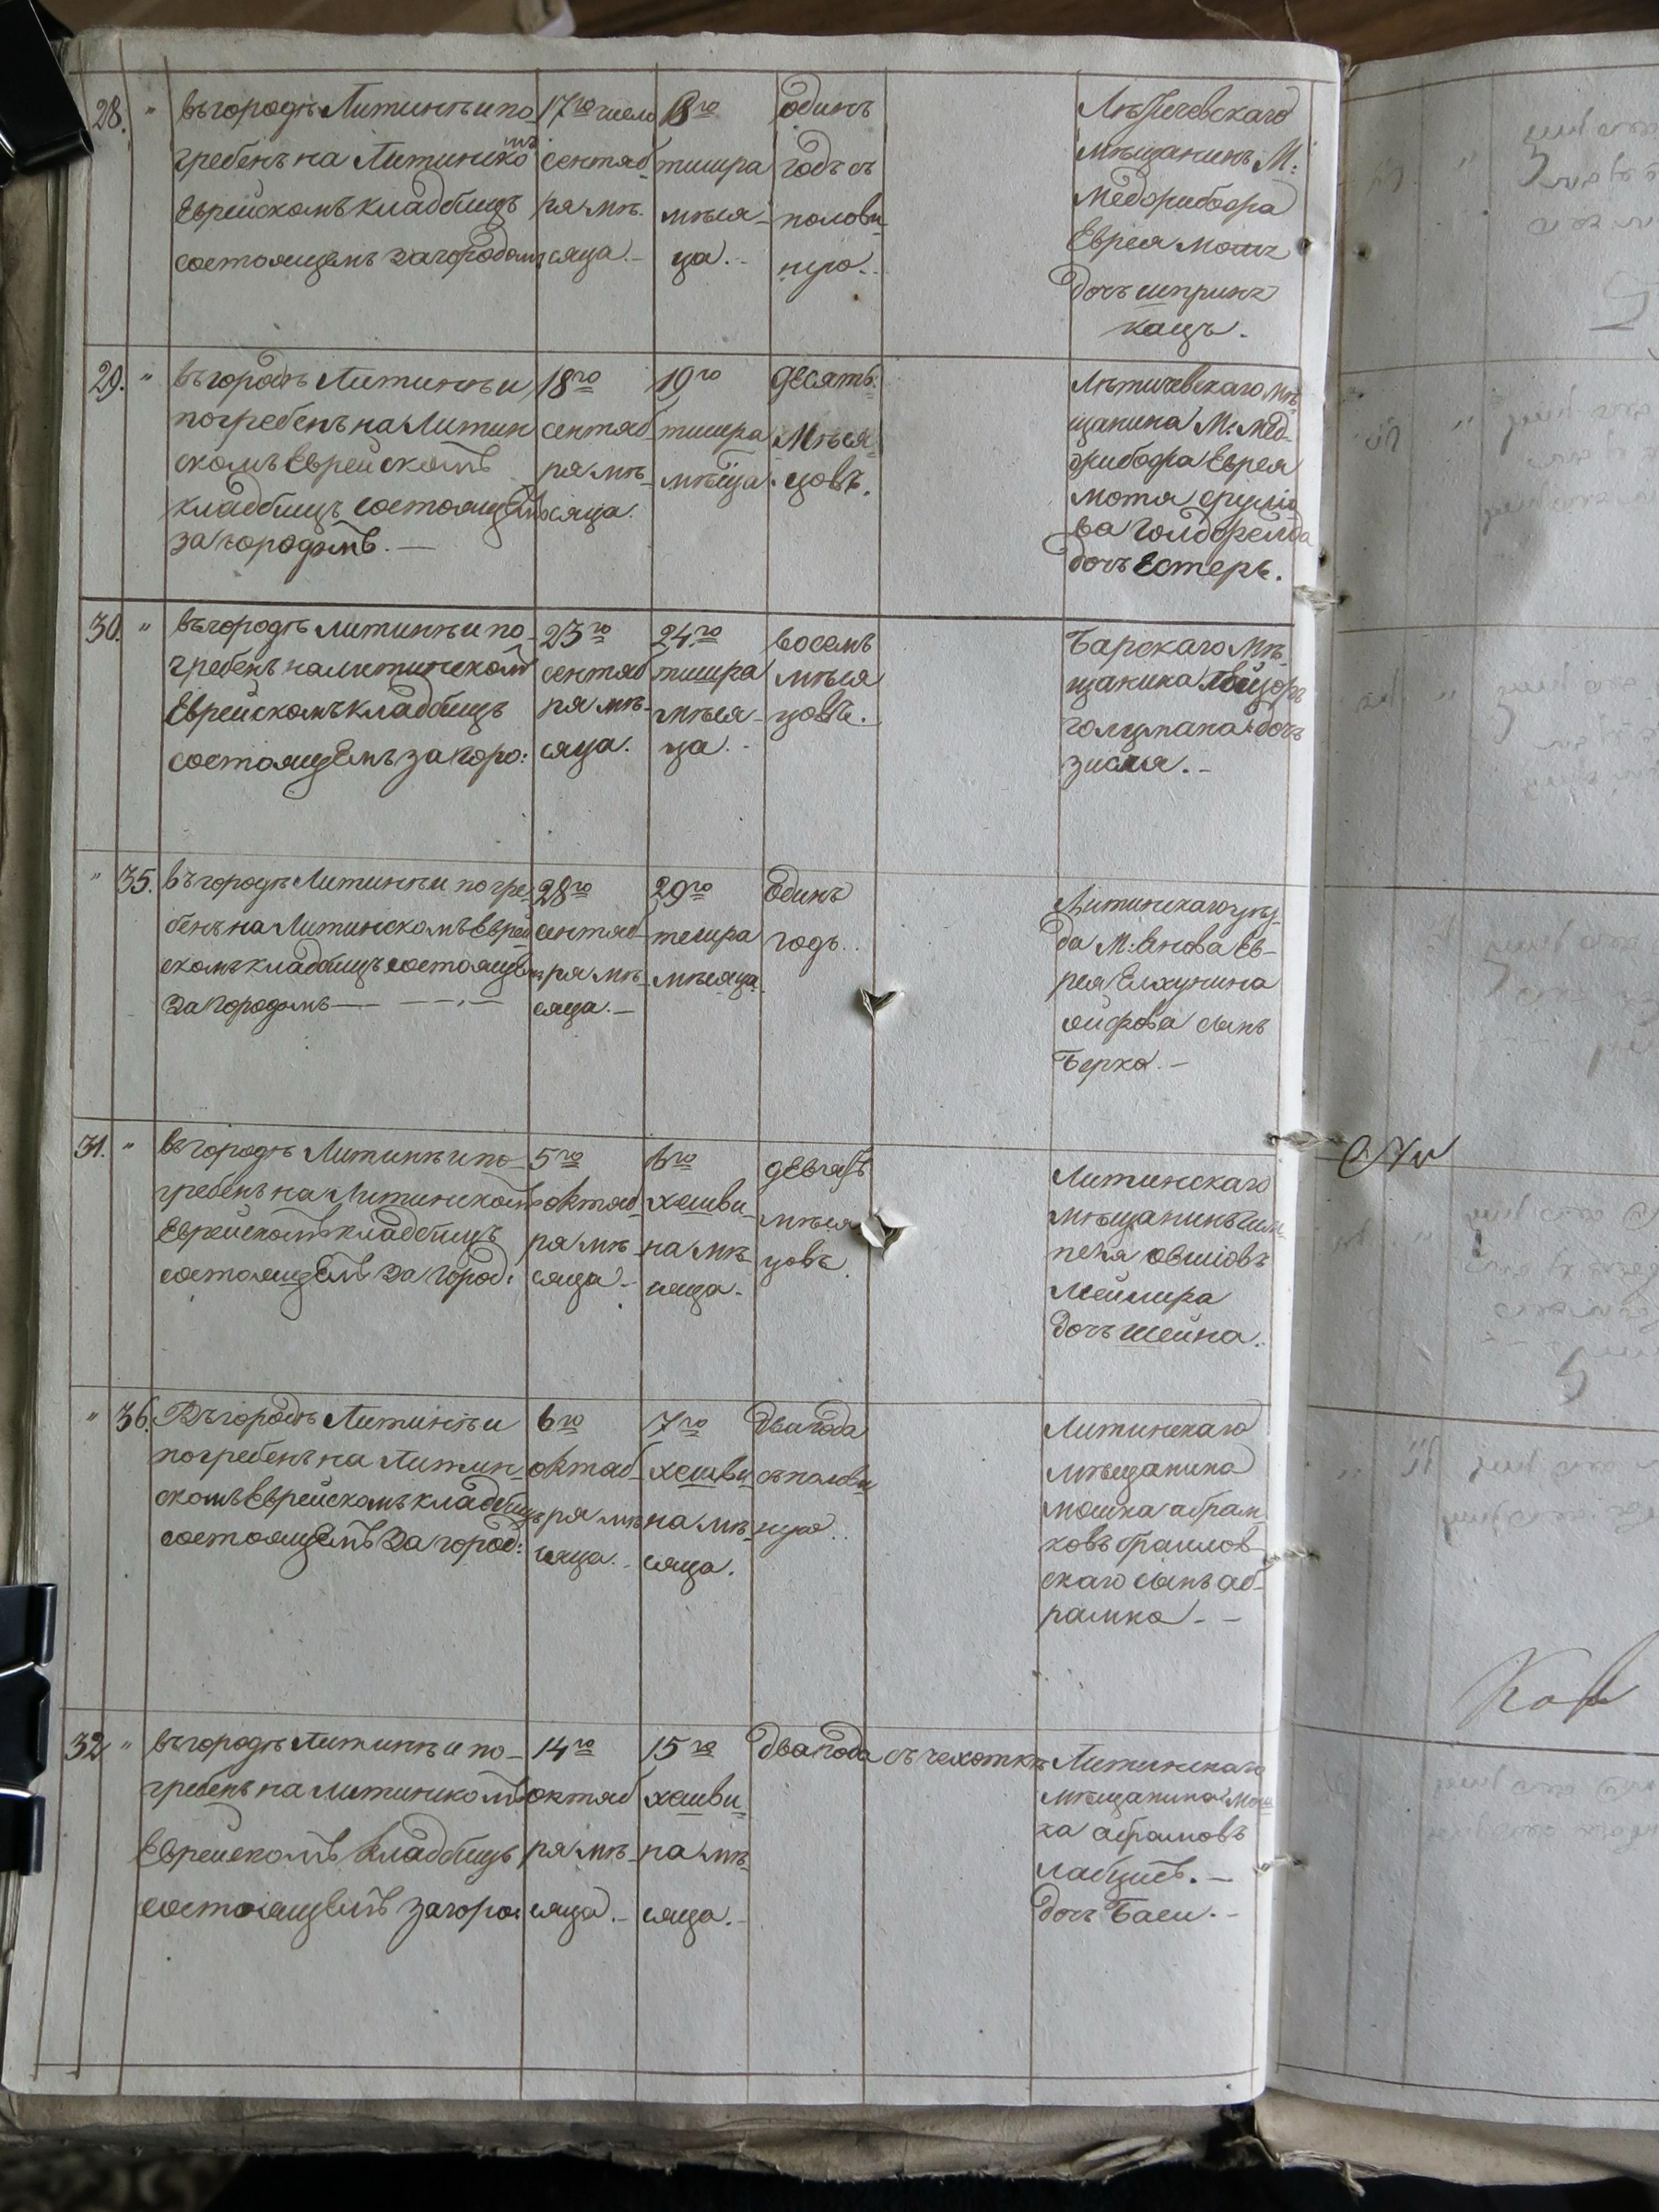 28. " въ городѣ Литинѣ и по-
гребенъ на Литинско
мъ
Еврейскомъ кладбищѣ
состоящемъ за городомъ
17го число
сентяб
ря мѣ-
сяца.-
18го
тишра
мѣся-
ца.-
одинъ
годъ съ
полови
ную.-
Летичевскаго
мѣщанинъ М:
Меджибожа
Еврея
дочъ шпринг
кацъ.
29. " въ городѣ Литинѣ и
погребенъ на Литин
скомъ Еврейскомъ
кладбищѣ состоящемъ
за городомъ.-
18го
сентяб
ря мѣ-
сяца.
19го
тишра
мѣсца.
десять
мѣся-
цовъ.
Лѣтичевскаго мѣ-
щанина М: Мед-
Еврея
мотя
ва Голдфелда
дочъ Естерь.
30. " въ городѣ литинѣ и по-
гребенъ на литинскомъ
Еврейскомъ кладбищѣ
состоящемъ за горо:
23го
сентяб
ря мѣ-
сяца.
24го
тишра
мѣся-
ца.-
восемъ
мѣся
цовъ.
Барскаго мѣ-
щанина
голцмана дочъ
зисля.-
" 35. въ городѣ Литинѣ и погре-
бенъ на Литинскомъ Еврей
скомъ кладбищѣ состоящемъ
за городомъ-
28го
сентяб
ря мѣ-
сяца.-
29го
тишра
мѣсяца.
Одинъ
годъ..
Литинскаго уѣз-
да М: Янова Ев-
рея
сынъ
Берко.-
31. " въ городѣ Литинѣ и по-
гребенъ на Литинскомъ
Еврейскомъ кладбищѣ
состоящемъ за город:
5го
октяб
ря мѣ-
сяца-
6го
хешви
на мѣ-
сяца-
девять
мѣся
цовъ
Литинскаго
мѣщанинъ
овшіовъ
дочъ шейна.
" 36. Въ городѣ Литинѣ и
погребенъ на Литин-
скомъ Еврейскомъ кладбищѣ
состоящемъ за город:
6го
октяб
ря мѣ
сяца.-
7го
хешви
на мѣ
сяца.
два года
съ полови
ную..
Литинскаго
мѣщанина
мошка абрам
ковъ браилов-
скаго сынъ аб-
рамко.--
32 " въ городѣ Литинѣ и по-
гребенъ на литинскомъ
Еврейскомъ кладбищѣ
состоящемъ за горо:
14го
октяб
ря мѣ-
сяца.-
15го
хешви
на мѣ-
сяца.-
два года
съ чехотки
Литинскаго
мѣщанина мош
ка абрамовъ
дочъ Баси.-